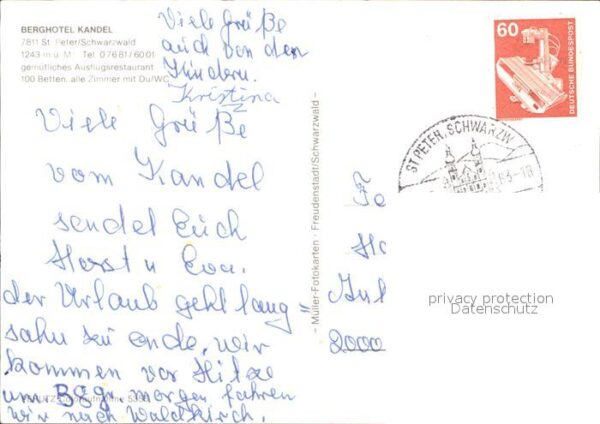 BERGHOTEL KANDEL
7811 St. Peter/Schwarzwald
1243 m ü. M. Tel. 0 76 81 / 60 01
gemütliches Ausflugsrestaurant
100 Betten, alle Zimmer mit Du/WC
Viele Grüße
auch von den
Kindern.
Kristina
Viele Grüße
vom Kandel
sendet Euch
Horst u Eva.
der Urlaub geht lang
sahn zu ende, wir
kommen vor Hitze
um morgen fahren
wir nach Waldkirch.
– Müller-Fotokarten · Freudenstadt/Schwarzwald –
60
DEUTSCHE BUNDESPOST
ST PETER, SCHWARZW
Fe
Ho
2000
privacy protection
Datenschutz